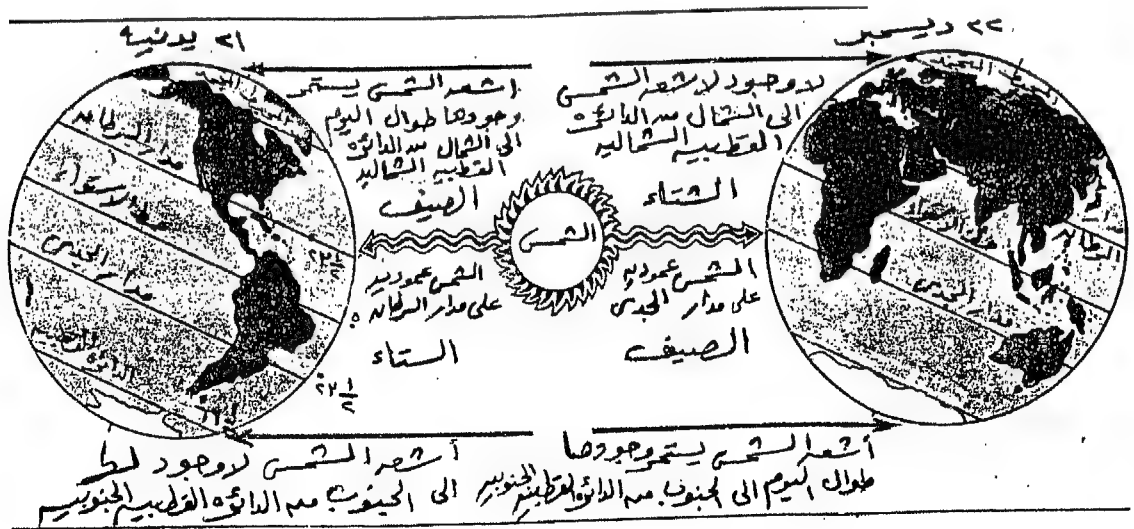 ٢٢ ديسمبر
٢١ يونيه
لا وجود لاشعه الشمس
الى الشمال من الدائره
القطبيه الشماليه
الشتاء
اشعه الشمس يستمر
وجودها طوال اليوم
الى الشمال من الدائره
القطبيه الشماليه
الصيف
الشمس
الشمس عموديه
على مدار الجدى
الصيف
الشمس عموديه
على مدار السرطان
الستاء
مدار السرطان
خط الاستواء
مدار الجدى
الدائره القطبيه
٢٣ ١/٢
٢٣ ١/٢
مدار الجدى
أشعه الشمس يستمر وجودها
طوال اليوم الى الجنوب من الدائره القطبيه الجنوبيه
أشعه الشمس لا وجود لها
الى الجنوب من الدائره القطبيه الجنوبيه